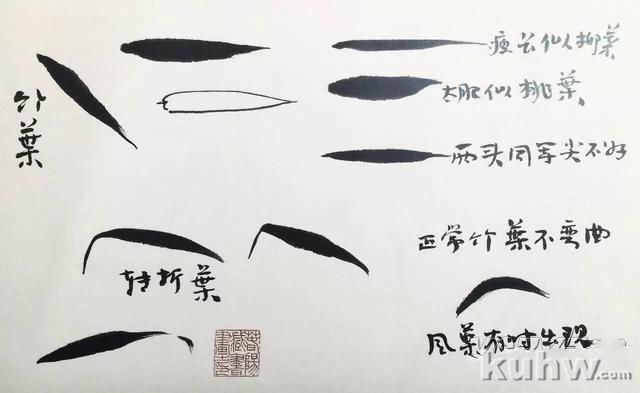 竹葉
瘦长似柳葉
太肥似桃葉
两头同等尖不好
正常竹葉不弯曲
转折葉
风葉有时出现
kuhw.com